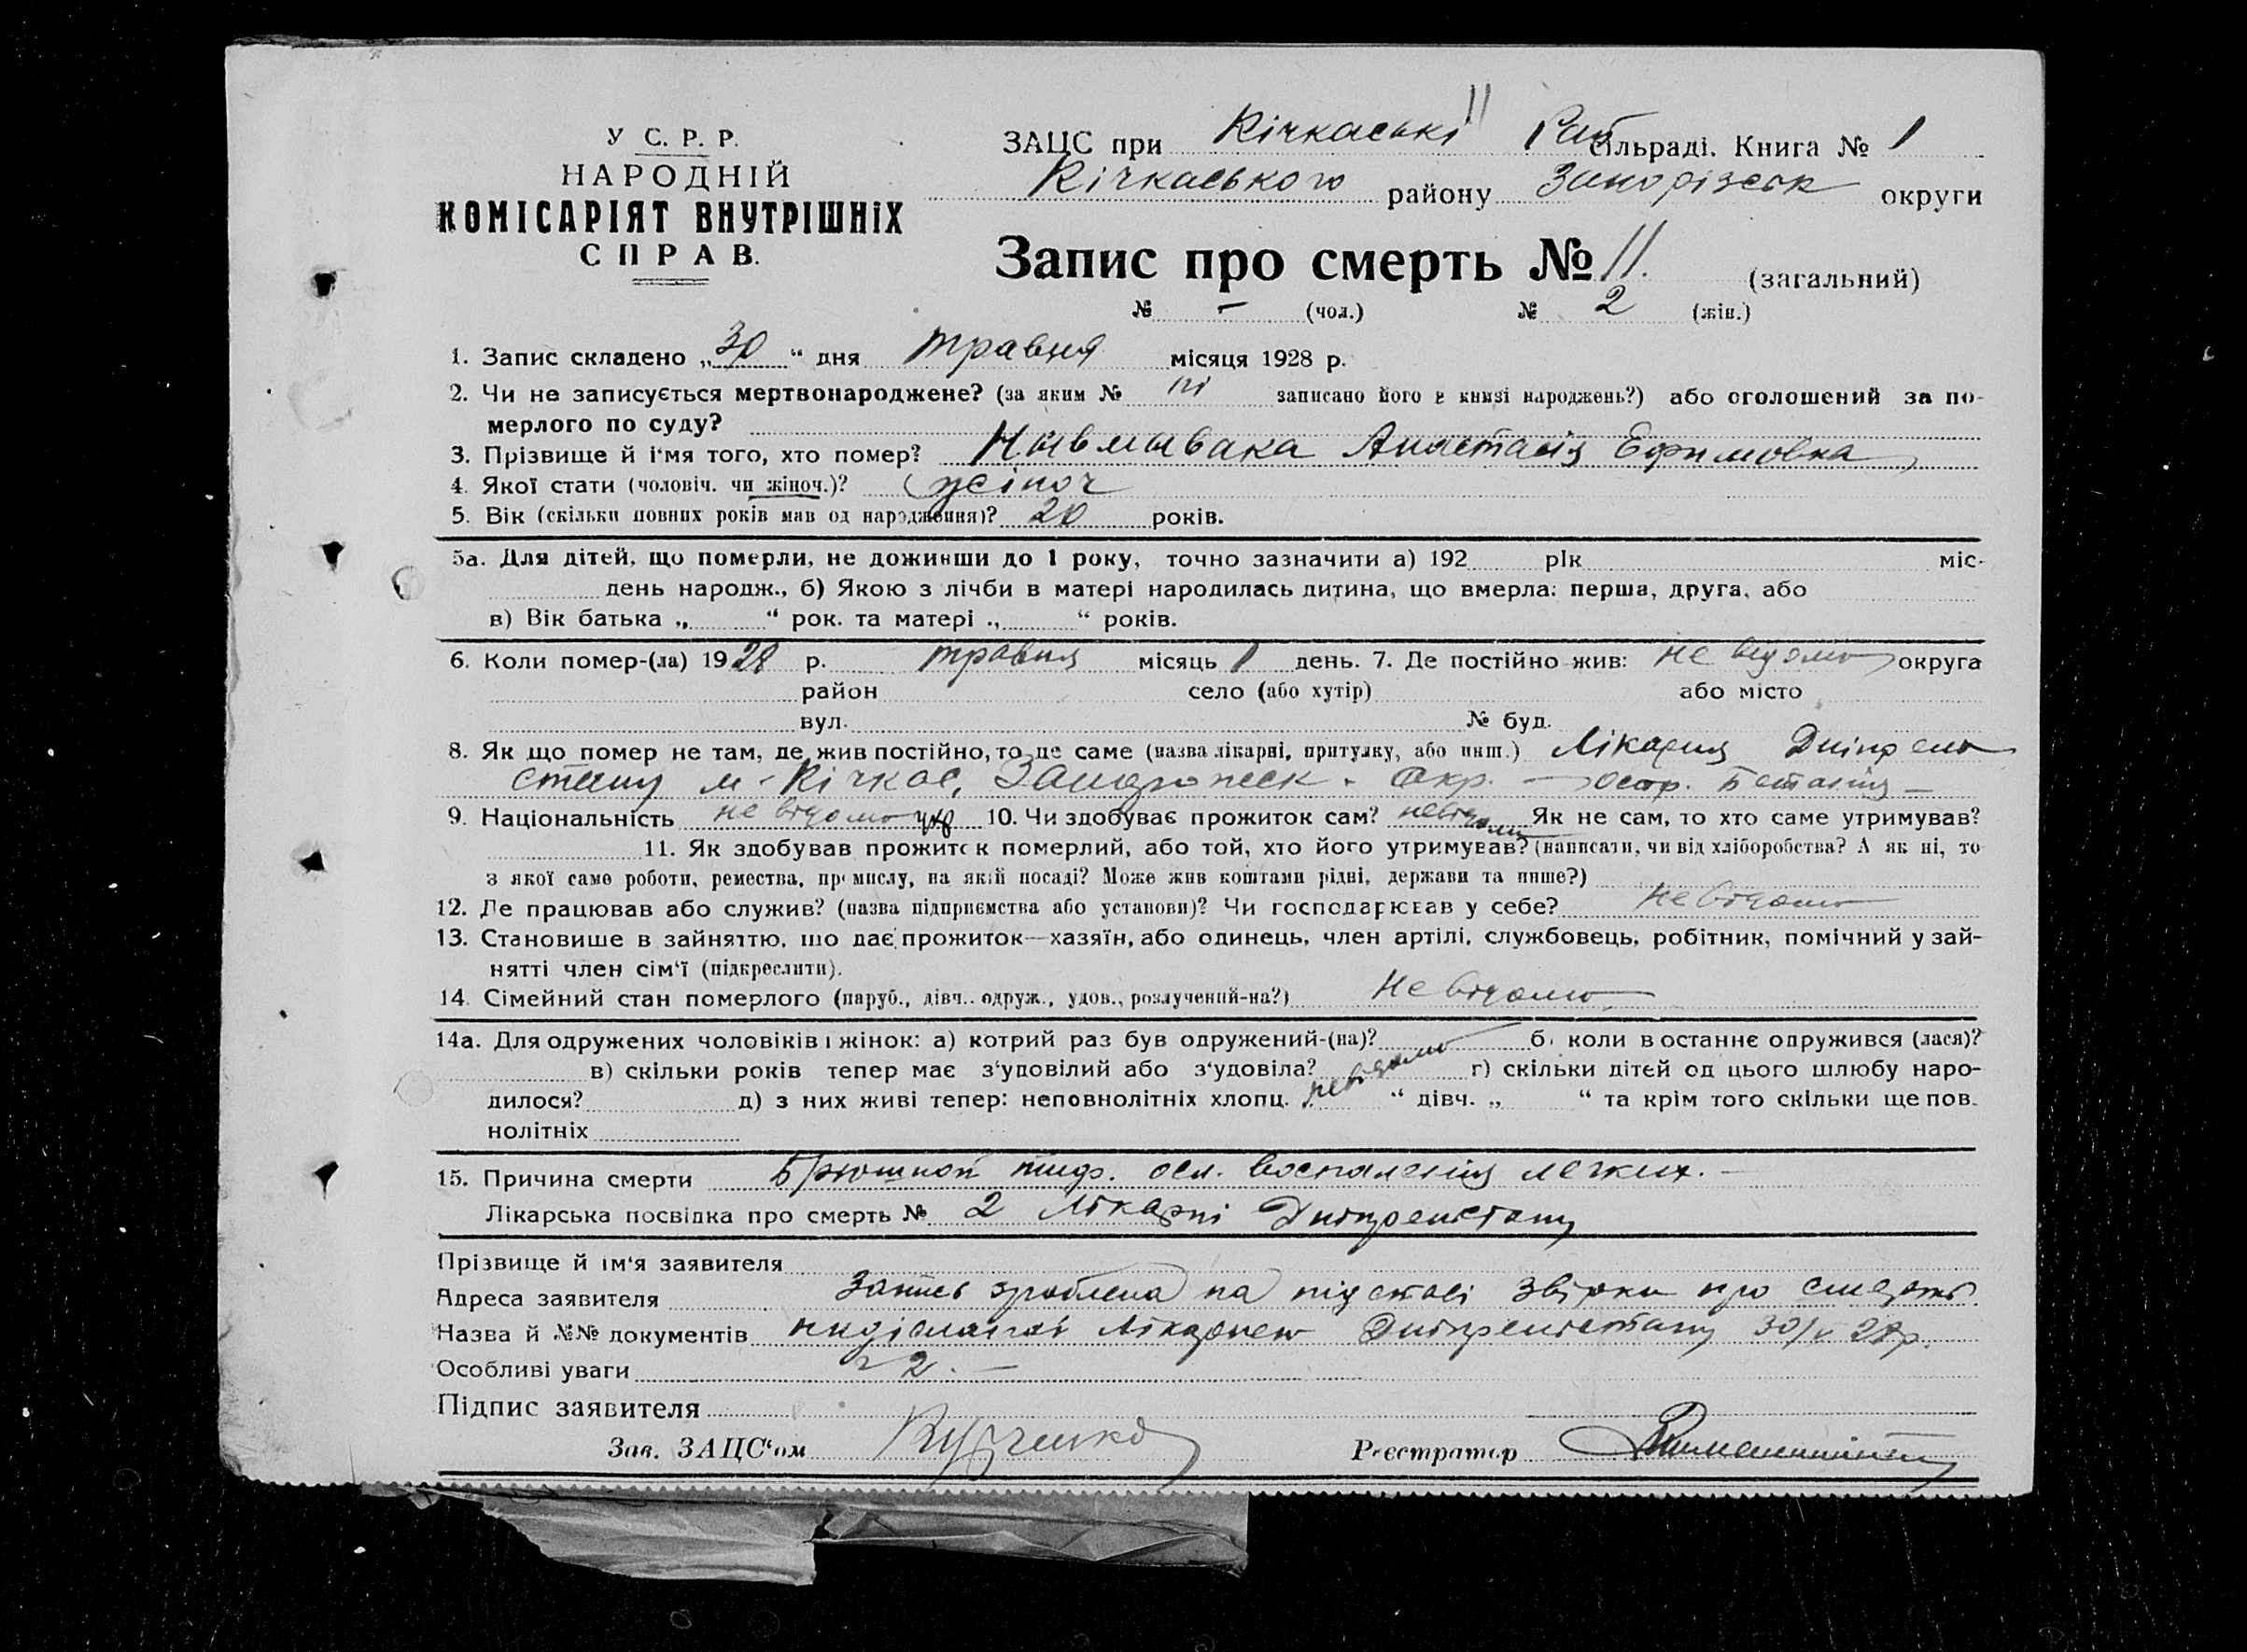 У С. Р. Р.
НАРОДНІЙ
КОМІСАРІЯТ ВНУТРІШНІХ
СПРАВ.
ЗАЦС при Кічкаські II Сільраді. Книга № 1
Кічкаського району Запорізськ округи
Запис про смерть № 11. (загальний)
№ – (чол.) № 2 (жін.)
1. Запис складено „30“ дня травня місяця 1928 р.
2. Чи не записується мертвонароджене? (за яким № ні записано його в книзі народжень?) або оголошений за по-
мерлого по суду?
3. Прізвище й і'мя того, хто помер? Анастасія Ефимовна
4. Якої стати (чоловіч. чи жіноч.)? жіноч
5. Вік (скільки повних років мав од народження)? 20 років.
5а. Для дітей, що померли, не доживши до 1 року, точно зазначити а) 192 рік міс-
день народж., б) Якою з лічби в матері народилась дитина, що вмерла: перша, друга, або
в) Вік батька „ “ рок. та матері „ “ років.
6. Коли помер-(ла) 1928 р. травня місяць 1 день. 7. Де постійно жив: не відомо округа
район село (або хутір) або місто
вул. № буд.
8. Як що помер не там, де жив постійно, то де саме (назва лікарні, притулку, або инш.) Лікарня Дніпрель
стану м. Кічкас, Запорожск. Окр. —
9. Національність не відомо укр 10. Чи здобуває прожиток сам? невідомо Як не сам, то хто саме утримував?
11. Як здобував прожиток померлий, або той, хто його утримував? (написати, чи від хліборобства? А як ні, то
з якої саме роботи, ремества, промислу, на якій посаді? Може жив коштами рідні, держави та инше?)
12. Де працював або служив? (назва підприємства або установи)? Чи господарював у себе? не відомо
13. Становище в зайняттю, що дає прожиток—хазяїн, або одинець, член артілі, службовець, робітник, помічний у зай-
нятті член сім'ї (підкреслити).
14. Сімейний стан померлого (паруб., дівч., одруж., удов., розлучений-на?) не відомо
14а. Для одружених чоловіків і жінок: а) котрий раз був одружений-(на)? б) коли в останнє одружився (лася)?
в) скільки років тепер має з'уповілий або з'удовіла? невідомо г) скільки дітей од цього шлюбу наро-
дилося? д) з них живі тепер: неповнолітніх хлопц. “ дівч. „ “ та крім того скільки ще пов-
нолітніх
15. Причина смерти Брюшной тиф. осл. воспаления легких. —
Лікарська посвідка про смерть № 2 Лікарні Дніпрельстану
Прізвище й ім'я заявителя
Адреса заявителя Запись зроблена на підставі звірки про смерть
Назва й №№ документів надісланої Лікарнею Дніпрельстану 30/V 28р.
Особливі уваги № 2. —
Підпис заявителя
Зав. ЗАЦС'ом
Реєстратор